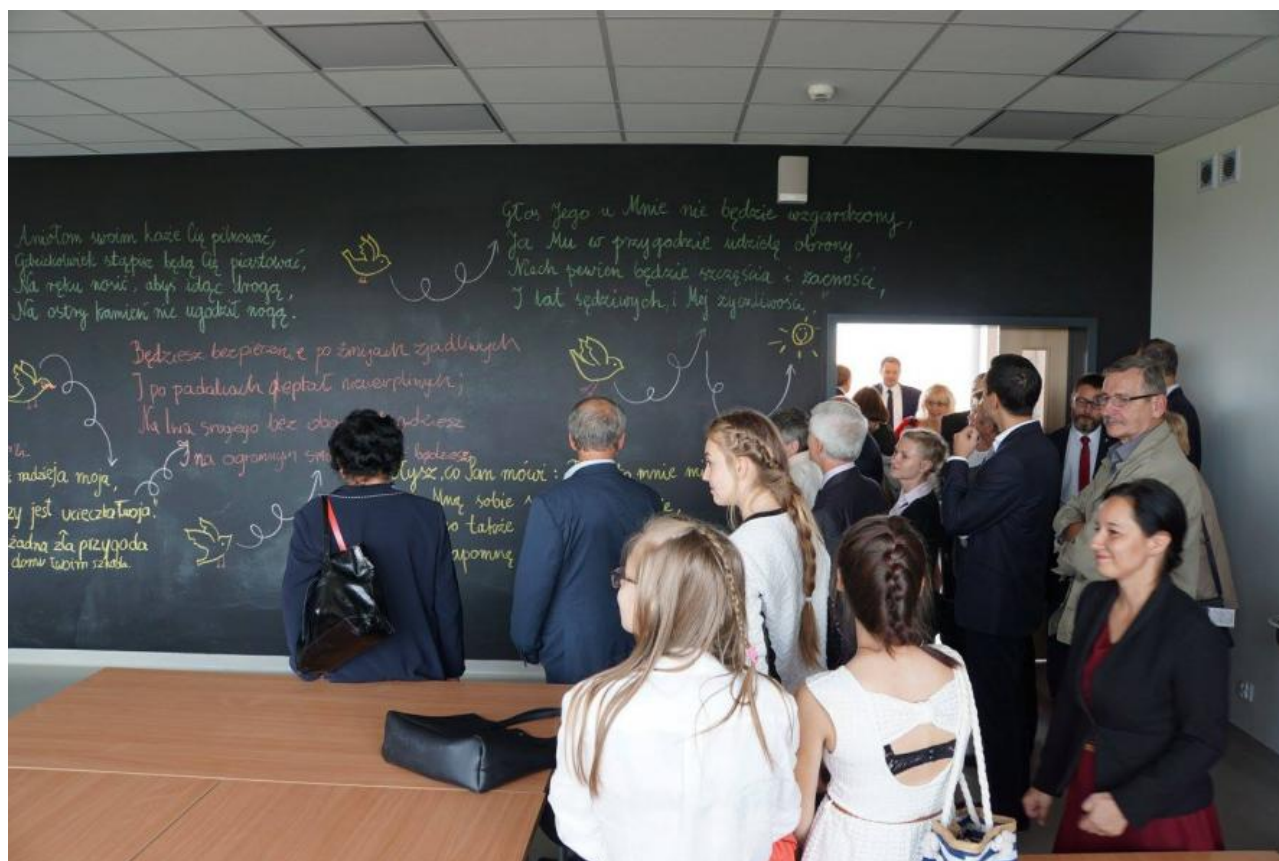 Aniołom swoim każe Cię pilnować,
Gdziekolwiek stąpisz będą Cię piastować,
Na ręku nosić, abyś idąc drogą,
Na ostry kamień nie ugodził nogą.
Głos Jego u Mnie nie będzie wzgardzony,
Ja Mu w przygodzie udzielę obrony,
Niech pewien będzie szczęścia i zacności,
I lat sędziwych, i Mej życzliwości
Będziesz bezpiecznie po żmijach zjadliwych
I po padalcach deptał niecierpliwych;
Na lwa srogiego bez
I na ogromnym będziesz
nadzieja moja,
jest ucieczka Twoja!
żadna zła przygoda
domu Twoim szkoda.
co Pan mówi : mnie
Mną sobie
także